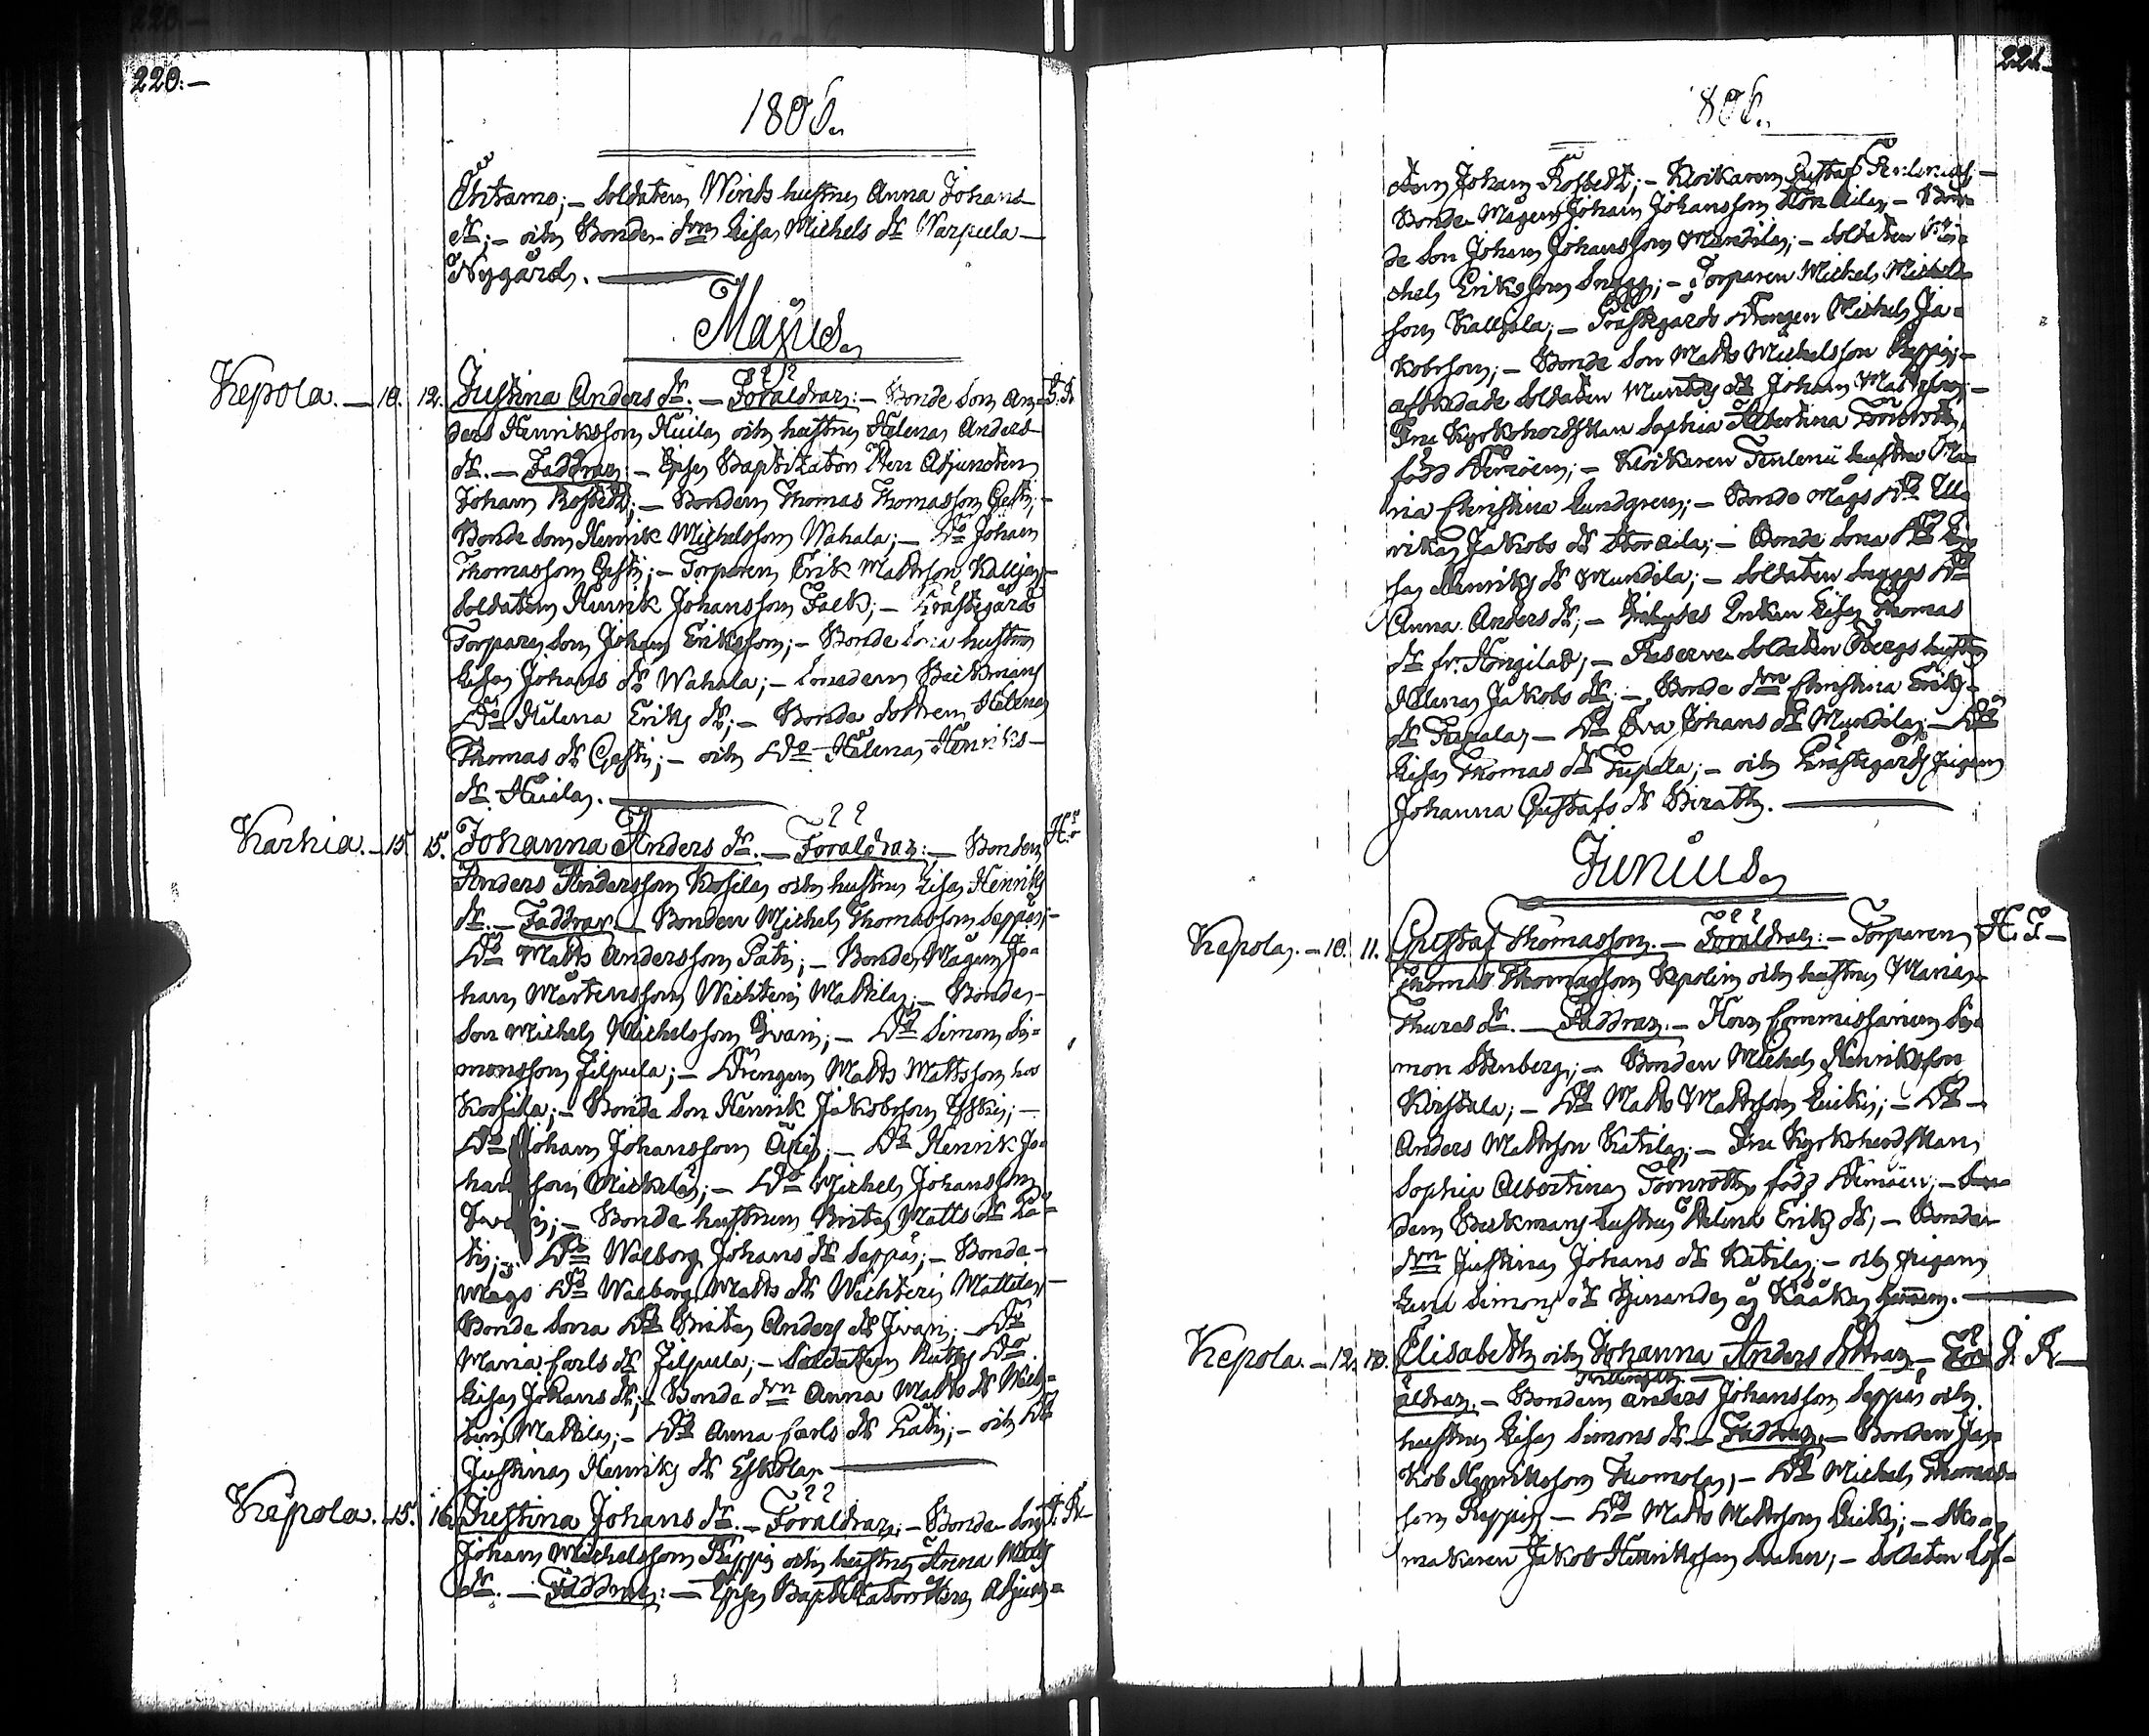 220.—
1806.
Ohitamo; — Soldaten Winds hustru Anna Johans
dr; — och Bonde drn Lisa Michels dr Warpula
Nygård.
Majus.
Kepola. — 10. 12. Justina Anders dr. — Föräldrar: — Bonde Son An- J. R
ders Henriksson Huila och hustru Helena Anders
dr. — Faddrar: — Ipse Baptizator Herr Adjuncten
Johan Rostedt; — Bonden Thomas Thomasson Gesti; —
Bonde Son Henrik Michelsson Wahala; — Do Johan
Thomasson Gesti; — Torparen Erik Mattsson Kallja; —
Soldaten Henrik Johansson Falk; — Prästegårds
Torpare Son Johan Eriksson; — Bonde Sona hustru
Lisa Johans dr Wahala; — Smeden Beckmans
Do Helena Eriks dr; — Bonde dottren Helena
Thomas dr Gesti; — och Do Helena Henriks
dr Huila.
Karhia. — 15. 15. Johanna Anders dr. — Föräldrar: — Bonden
Anders Andersson Kosila och hustru Lisa Henriks
dr. — Faddrar — Bonden Michel Thomasson Seppä; —
Do Matts Andersson Pati; — Bonde Mågen Jo-
han Mårtensson Wichteri Mattila; — Bonde
Son Michel Michelsson Iivari; — Do Simon Si-
monsson Jilpula; — Drengen Matts Mattsson hos
Kosila; — Bonde Son Henrik Jakobsson
Do Johan Johansson Äijö; — Do Henrik Jo-
hansson Mickola; — Do Michel Johansson
— Bonde hustrun Brita Matts dr Pä-
ti; — Do Walborg Johans dr Seppä; — Bonde
Mågs Do Walborg Matts dr Wichteri Mattila; —
Bonde Sona Do Brita Anders dr Iivari; — Do
Maria Carls dr Jilpula; — Soldaten Do
Lisa Johans dr; — Bonde drn Anna Matts dr Wich-
teri Mattila; — Do Anna Carls dr Päti; — och Do
Justina Henriks dr Eskola.
Kepola. — 15. 16. Justina Johans dr. — Föräldrar: — Bonde Son J. R
Johan Michelsson Reppi och hustru Anna Matts
dr. — Faddrar: — Ipse Baptizator Herr Adjunc-
221.
806.
ten Johan Rostedt; — Klockaren Gustaf Tenlenius; —
Bonde Mågen Johan Johansson Storaila; — Bon-
de Son Johan Johansson Mundila; — Soldaten Mi-
chel Eriksson Snygg; — Torparen Michel Michels-
son Kallsala; — Prästgårds Drengen Michel Ja-
kobsson; — Bonde Son Matts Michelsson Reppi; —
afskedade Soldaten Johan Mattsson; —
Fru Kyrkoherdskan Sophia Albertina Törnroth,
född — Klockaren Tenlenii hustru Ma-
ria Christina Lundgren; — Bonde Mågs Do Ulla
rika Jakobs dr Storaila; — Bonde Sona Do Li-
sa Henriks dr Mundila; — Soldaten Snyggs Do
Anna Anders dr; — Enkan Lisa Thomas
dr fr. Hongilat; — Reserve Soldaten Bergs hustru
Helena Jakobs dr; — Bonde drn Christina Eriks
dr — Do Eva Johans dr Mundila; — Do
Lisa Thomas dr Tupala; — och Prästegårds Pigan
Johanna Gustafs dr
Junius.
Kepola. — 10. 11. Gustaf Thomasson. — Föräldrar: — Torparen H. T —
Thomas Thomasson Kepolin och hustru Maria
Thures dr. — Faddrar: — Herr Commissarien Si-
mon Stenberg; — Bonden Michel Henriksson
Kirstala; — Do Matts Mattsson Luiki; — Do —
Anders Mattsson Katila; — Fru Kyrkoherdskan
Sophia Albertina Törnroth född — Sme-
den Beckmans hustru Helena Eriks dr; — Bonde
drn Justina Johans dr Katila; — och Pigan
Lena Simons dr
Kepola. — 12. 13. Elisabeth och Johanna Anders Döttrar. — För- J. R —
äldrar. — Bonden Anders Johansson Seppä och
hustru Lisa Simons dr. — Faddrar: — Bonden Ja-
kob Henriksson Tuomola; — Do Michel Thomas-
son Reppi; — Do Matts Mattsson Luiki; — Sko-
makaren Jakob Henriksson — Soldaten Löf-